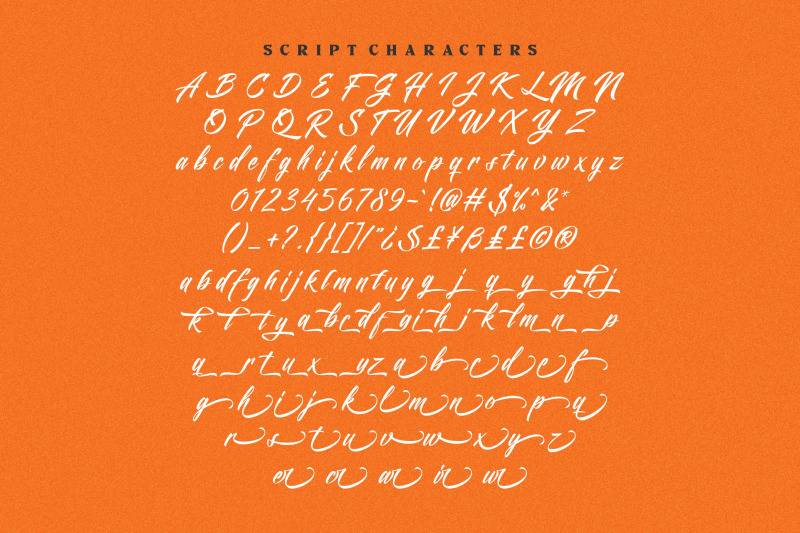 SCRIPT CHARACTERS
A B C D E F G H I J K L M N
O P Q R S T U V W X Y Z
a b c d e f g h i j k l m n o p q r s t u v w x y z
0 1 2 3 4 5 6 7 8 9 ~ ` ! @ # $ % ^ & *
( ) _ + ? . { } [ ] | " ¿ S £ ¥ β £ £ © ®
a b d f g h i j k l m n t u y g j q y g h j
k l t y a b c d f g i h j k l m n p
q r t u x y z a b c d e f
g h i j k l m n o p q
r s t u v w x y z
er or ar ir ur